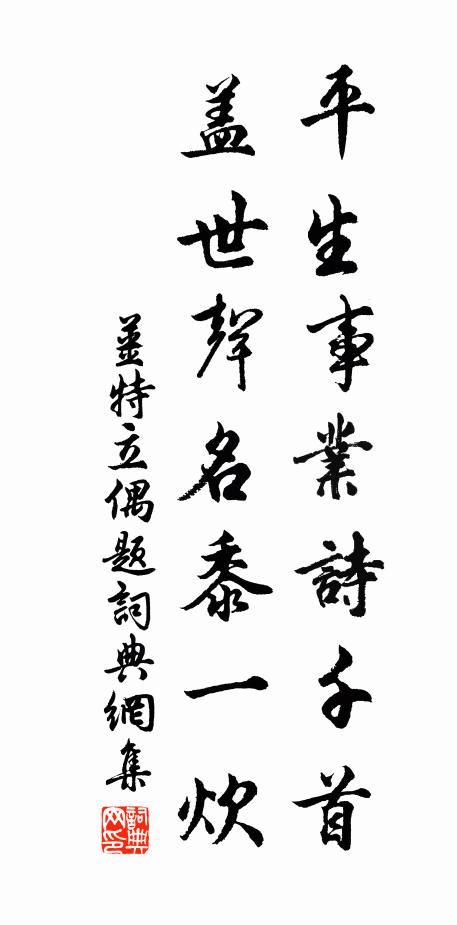 平生事業詩千首
盖世聲名黍一炊
姜特立偶题詞典網集
詞典網印